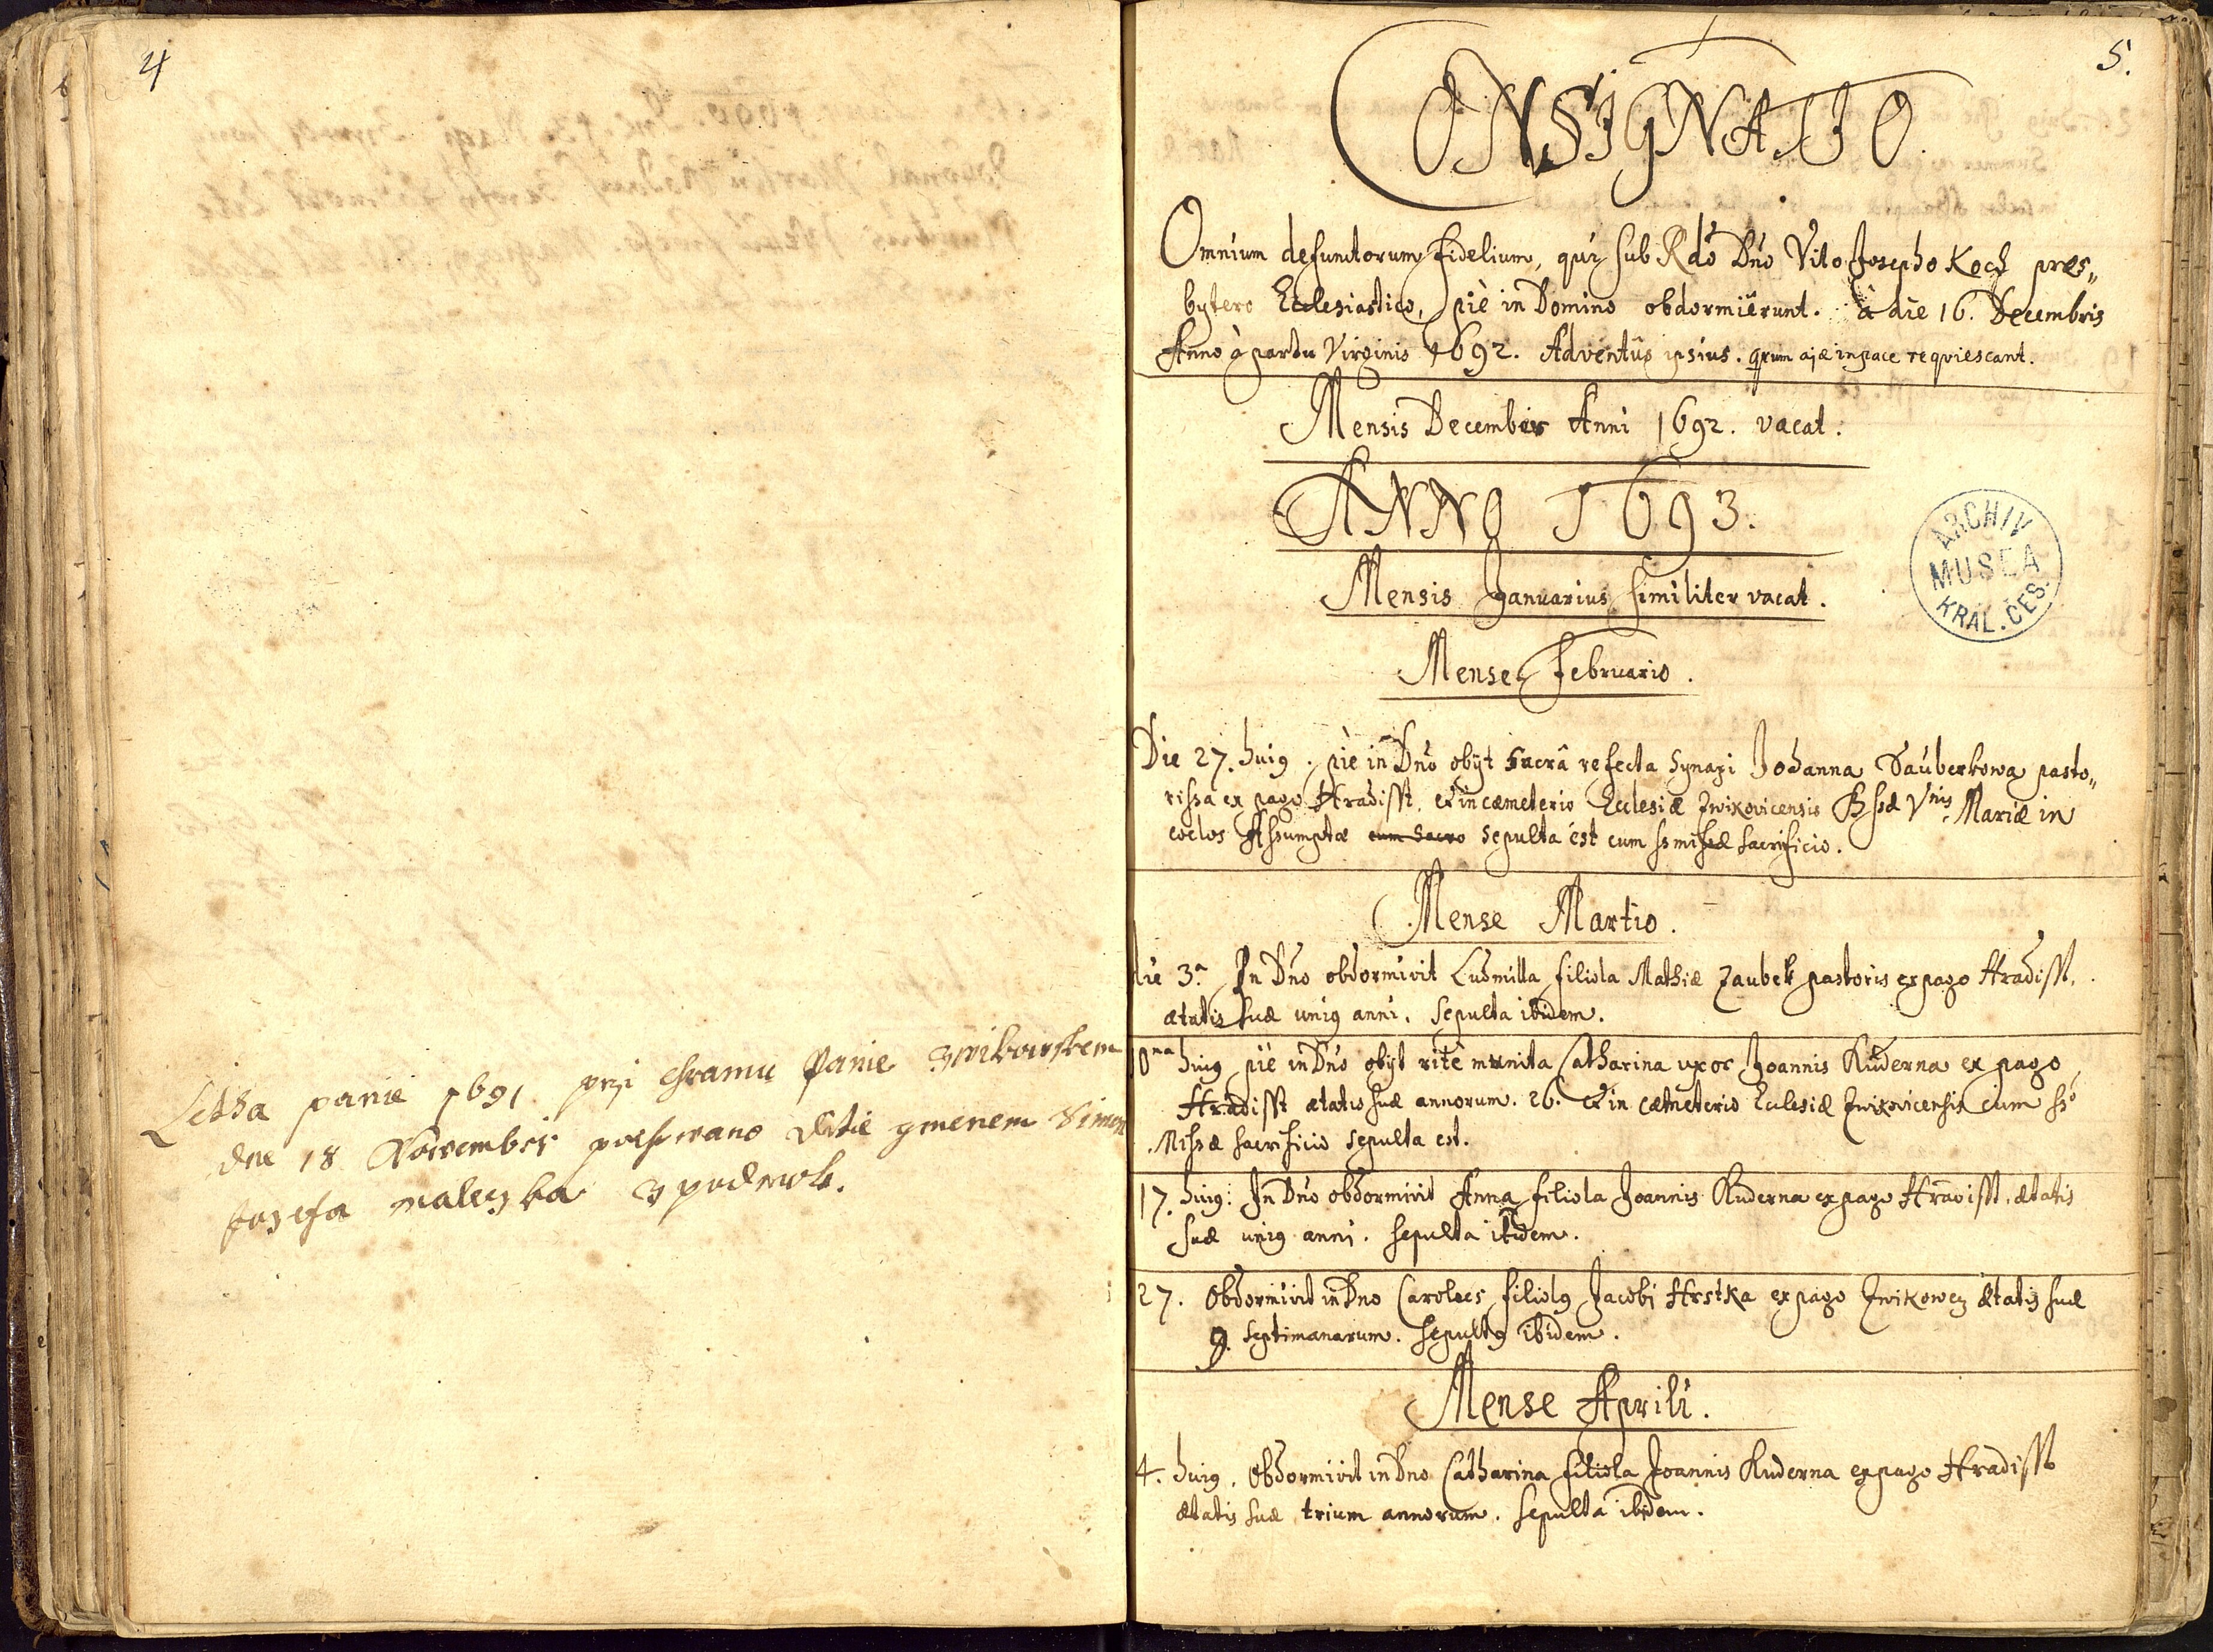 4
Letha panie 1691 przi chramu Panie Zwikowskem
dne 18 Novembris pochowano Ditie gmenem Simon
Jozefa z podmok.
5.
CONSIGNATIO.
Omnium defunctorum fidelium, qui sub Rdo Dno Vito Josepho Koch pres„
bytero Ecclesiastico, piè in Domino obdormierunt. à die 16. Decembris
Anno à partu Virginis 1692. Adventûs ipsius. qrum ajæ in pace requiescant.
Mensis December Anni 1692. vacat.
ANNO 1693.
Mensis Januarius similiter vacat.
ARCHIV MUSEA KRAL. ČES.
Mense Februario.
Die 27. huig. piè in Dno obijt sacrâ refecta Synaxi Johanna Sauberkowa pasto„
rissa ex pago Hradisst. et in cæmeterio Ecclesiæ Zwikovicensis Bssæ Vnis Mariæ in
coelos Assumptæ cum Sacro sepulta est cum ss missæ sacrificio.
Mense Martio.
die 3.a In Dno obdormivit Ludmilla filiola Mathiæ Zaubek pastoris ex pago Hradisst.
ætatis suæ unig anni. Sepulta ibidem.
10na huig piè in Dno obijt ritè munita Catharina uxor Joannis Kuderna ex pago
Hradisst ætatis suæ annorum. 26. et in cæmeterio Eclesiæ Zwikovicensis cum sso
Missæ sacrificio sepulta est.
17. huig: In Dno obdormivit Anna filiola Joannis Kuderna ex pago Hradisst. ætatis
suæ unig anni. sepulta ibidem.
27. Obdormivit in Dno Carolus filiolg Jacobi Hrstka ex pago Zwikowcz ætatis suæ
9. septimanarum. sepultg ibidem.
Mense Aprili.
4. huig. Obdormivit in Dno Catharina filiola Joannis Kuderna ex pago Hradisst
ætatis suæ trium annorum. sepulta ibidem.